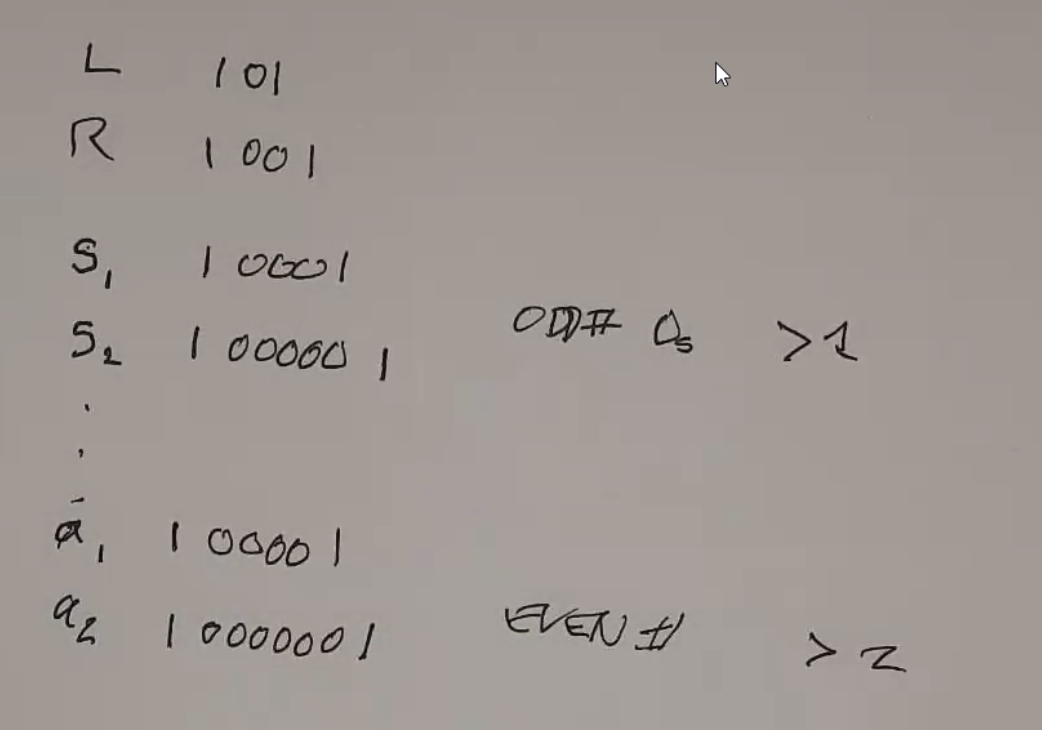 L 101
R 1001
S₁ 10001
S₂ 1000001 ODD # 0s >1
.
.
.
a₁ 100001
a₂ 10000001 EVEN # >2